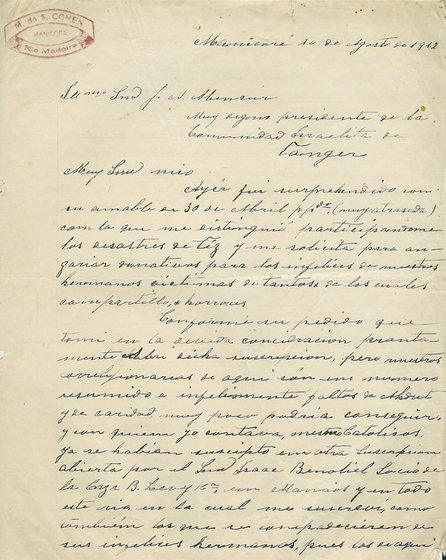 M. de S. COHEN
MANICORÉ
Rio Madeira
Manicoré 10 de Agosto de 1912
Illmo Snd J. A.
Muy digno presidente de la
Comunidad Israelita de
Tanger
Muy Snd mio
Ayér fui surprehendido con
su amable de 30 de Abril pp.do (muy atrasada)
com la que me distinguió participandome
los desastres de Féz y me solicita para an-
gariar donativos para los infelices de nuestros
hermanos victimas de tantos de los cuales
compartillo, horrores
Conforme su pedido que
tomi en la devida consideracion pronta-
mente dicha suscrepcion, pero nuestros
correligionarios de aqui són un numero
resumido e infelismente faltos de
y de caridad muy poco podria conseguir,
y con quiem yo contava, Catolicos,
ya se habian suscripto em otra suscripcion
abierta por el Snd Isaac Benoliel Socio de
la Caza B. Levy & Ca, em Manáos y en todo
este rio, en la cual me suscreve, como
tambiém los que se compadecieron de
sus infelices hermanos, pues los de aqui,